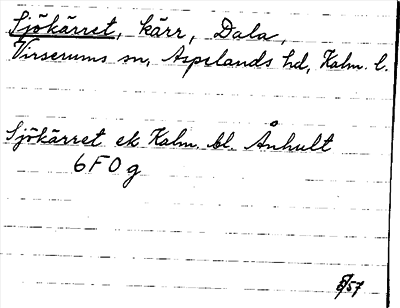 Sjökärret, kärr, Dala,
Virserums sn, Aspelands hd, Kalm. l.
Sjökärret ek Kalm. bl. Ånhult
6F0g
8/57